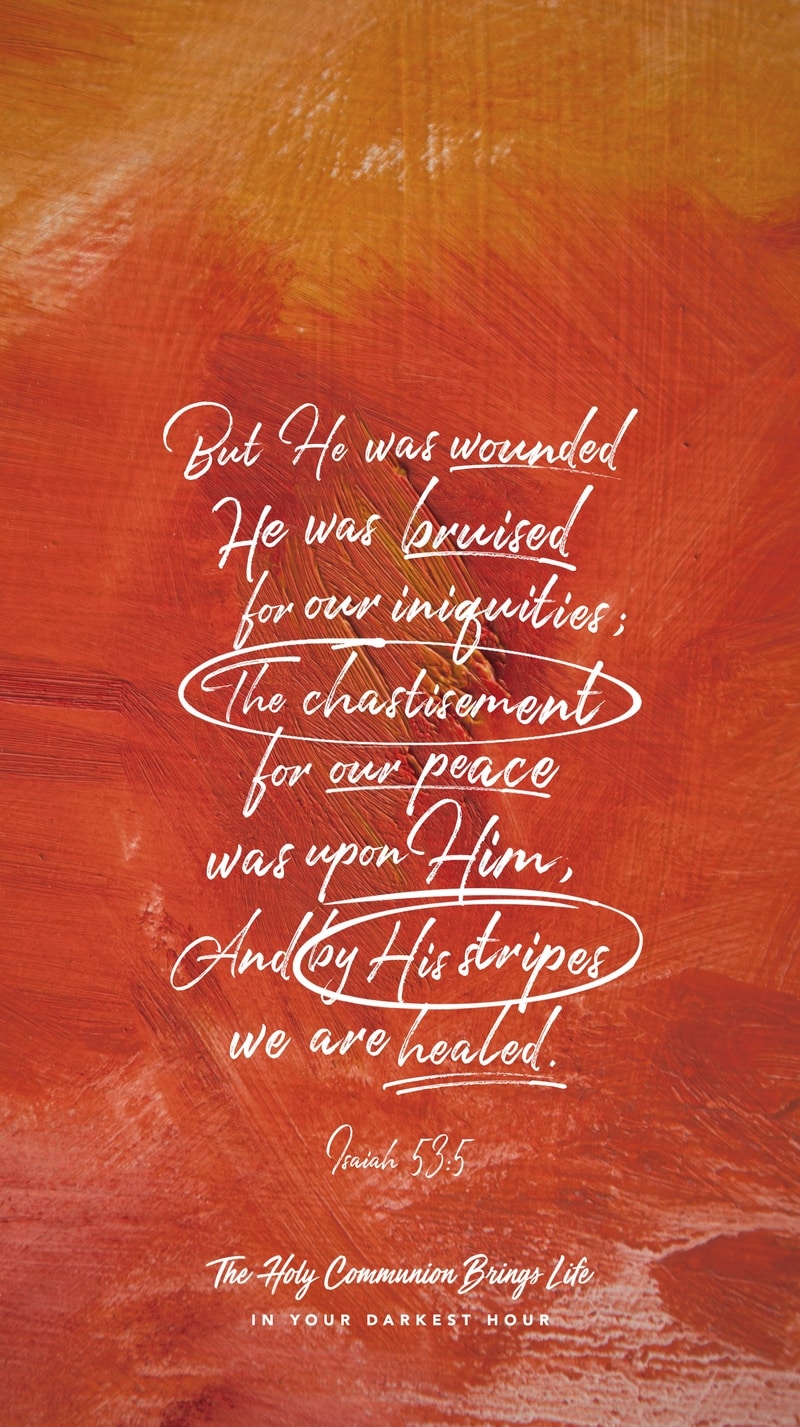 But He was wounded
He was bruised
for our iniquities;
The chastisement
for our peace
was upon Him,
And by His stripes
we are healed.
Isaiah 53:5
The Holy Communion Brings Life
IN YOUR DARKEST HOUR